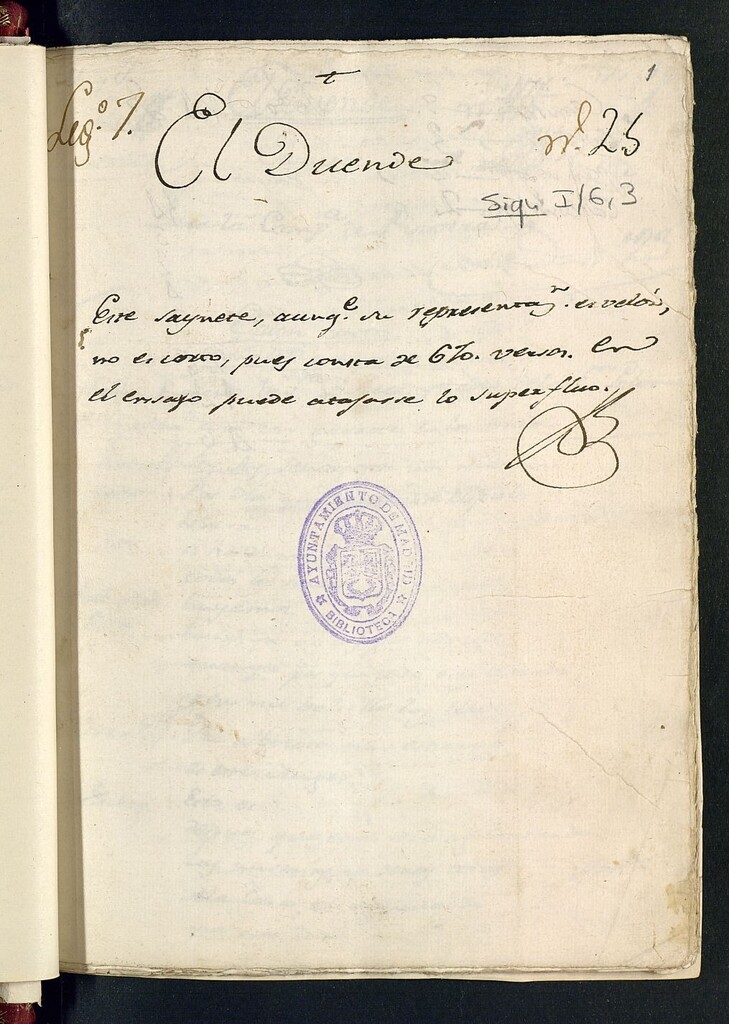 1
Leg.º 7.
El Duende
n.º 25
Sign I/6,3
Este saynete, aunq.e su representaz.n es veloz,
no es corto, pues consta de 610. versos. En
el ensayo puede atajarse lo superfluo.
AYUNTAMIENTO DE MADRID
BIBLIOTECA